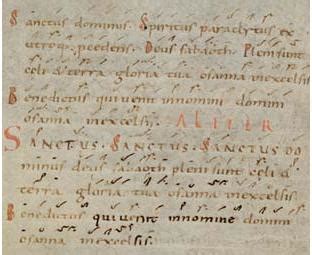 Sanctus dominus. Spiritus paraclytus ex
utroq; pcedens. Deus sabaoth. Pleni sunt
celi & terra gloria tua osanna inexcelsis
Benedictus qui uenit innomini domini
osanna inexcelsis. ALITER
SANCTUS. SANCTUS. SANCTUS DO
minus deus sabaoth pleni sunt celi &
terra gloria tua osanna inexcelsis.
Benedictus qui uenit innomine domini
osanna inexcelsis.